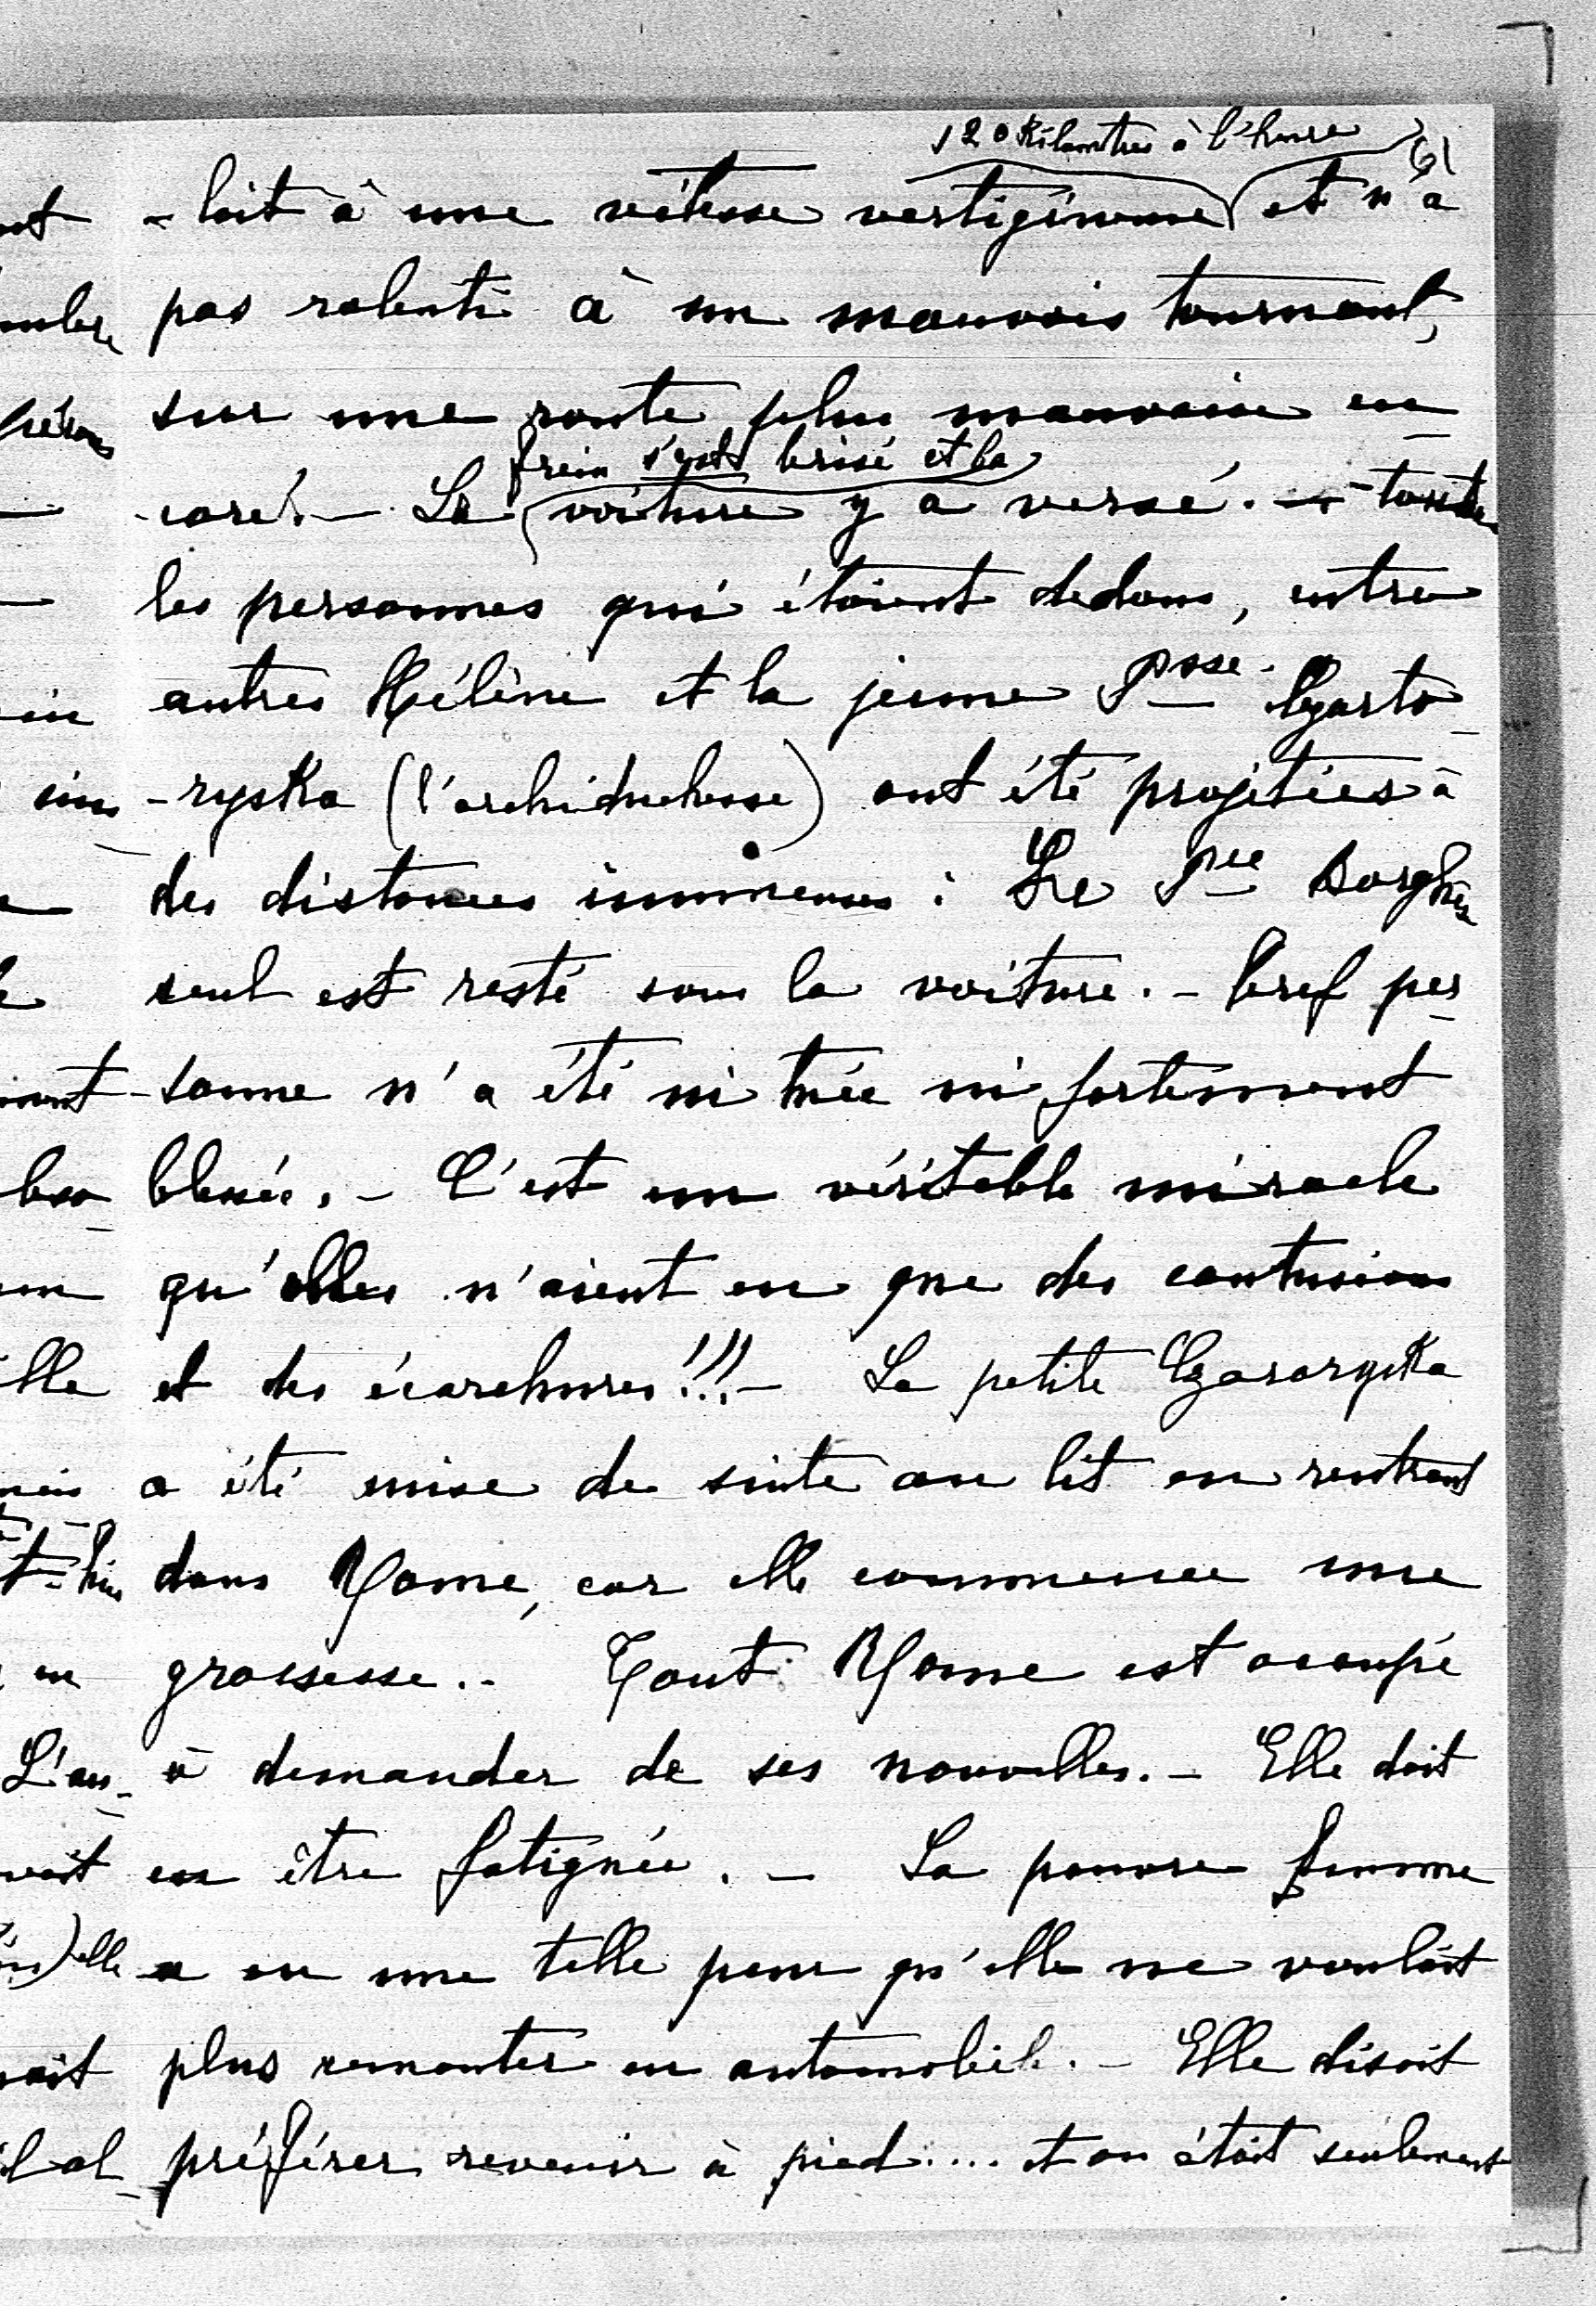 120 Kilomtres à l'heure
61
-lait à une vitesse vertigineuse et n'a
pas ralenti à un mauvais tournant,
sur une route plus mauvaise en-
frein s'est brisé et la
-core! — Le voiture y a versé. — toutes
les personnes qui étaient dedans, entre
autres Hélène et la jeune Psse Czarto-
-ryska (l'archiduchesse) ont été projetées à
des distances immenses : Le Pce Borghèse
seul est resté sous la voiture. - bref per-
-sonne n'a été ni tuée ni fortement
blessée. - C'est un véritable miracle
qu'elles n'aient eu que des contusions
et des écorchures!!! — La petite Czararyska
a été mise de suite au lit en rentrant
dans Rome, car elle commence une
grossesse.. Tout Rome est occupé
à demander de ses nouvelles. - Elle doit
en être fatiguée. - La pauvre femme
a eu une telle peur qu'elle ne voulait
plus remonter en automobile. - Elle disait
préférer revenir à pied.... et on était seulement